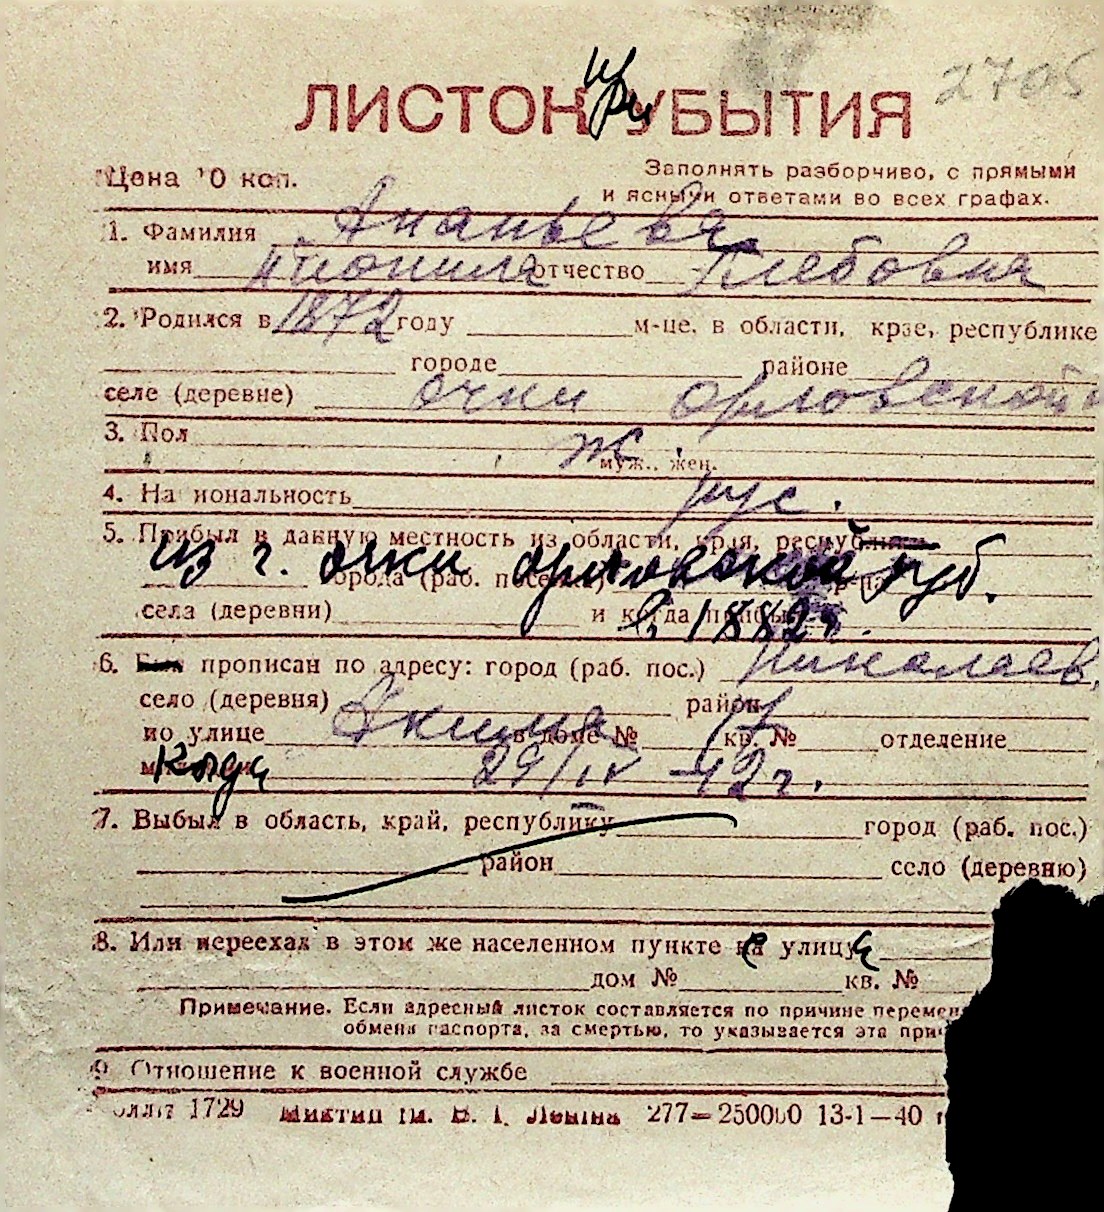 2705
при
ЛИСТОК УБЫТИЯ
Цена 10 коп.
Заполнять разборчиво, с прямыми
и ясными ответами во всех графах.
1. Фамилия Ананьева
имя отчество Глебовна
2. Родился в 1872 году м-це, в области, крае, республике
городе районе
селе (деревне) Очки Орловской
3. Пол ж.
муж., жен.
4. Национальность рус.
5. Прибыл в данную местность из области, края, республики
из г. Очки Орловской губ.
города (раб. поселка) р-на
села (деревни) и когда прибыл
в 1882 г.
6. Был прописан по адресу: город (раб. пос.) Николаев,
село (деревня) район
по улице Акима в доме № 17 кв. № отделение
милиции Когда 29/IV-42 г.
7. Выбыл в область, край, республику город (раб. пос.)
район село (деревню)
8. Или переехал в этом же населенном пункте с улицы
дом № кв. №
Примечание. Если адресный листок составляется по причине перемен
обмена паспорта, за смертью, то указывается эта при
9. Отношение к военной службе
1729 им. В. И. Ленина 277—250000 13-1—40